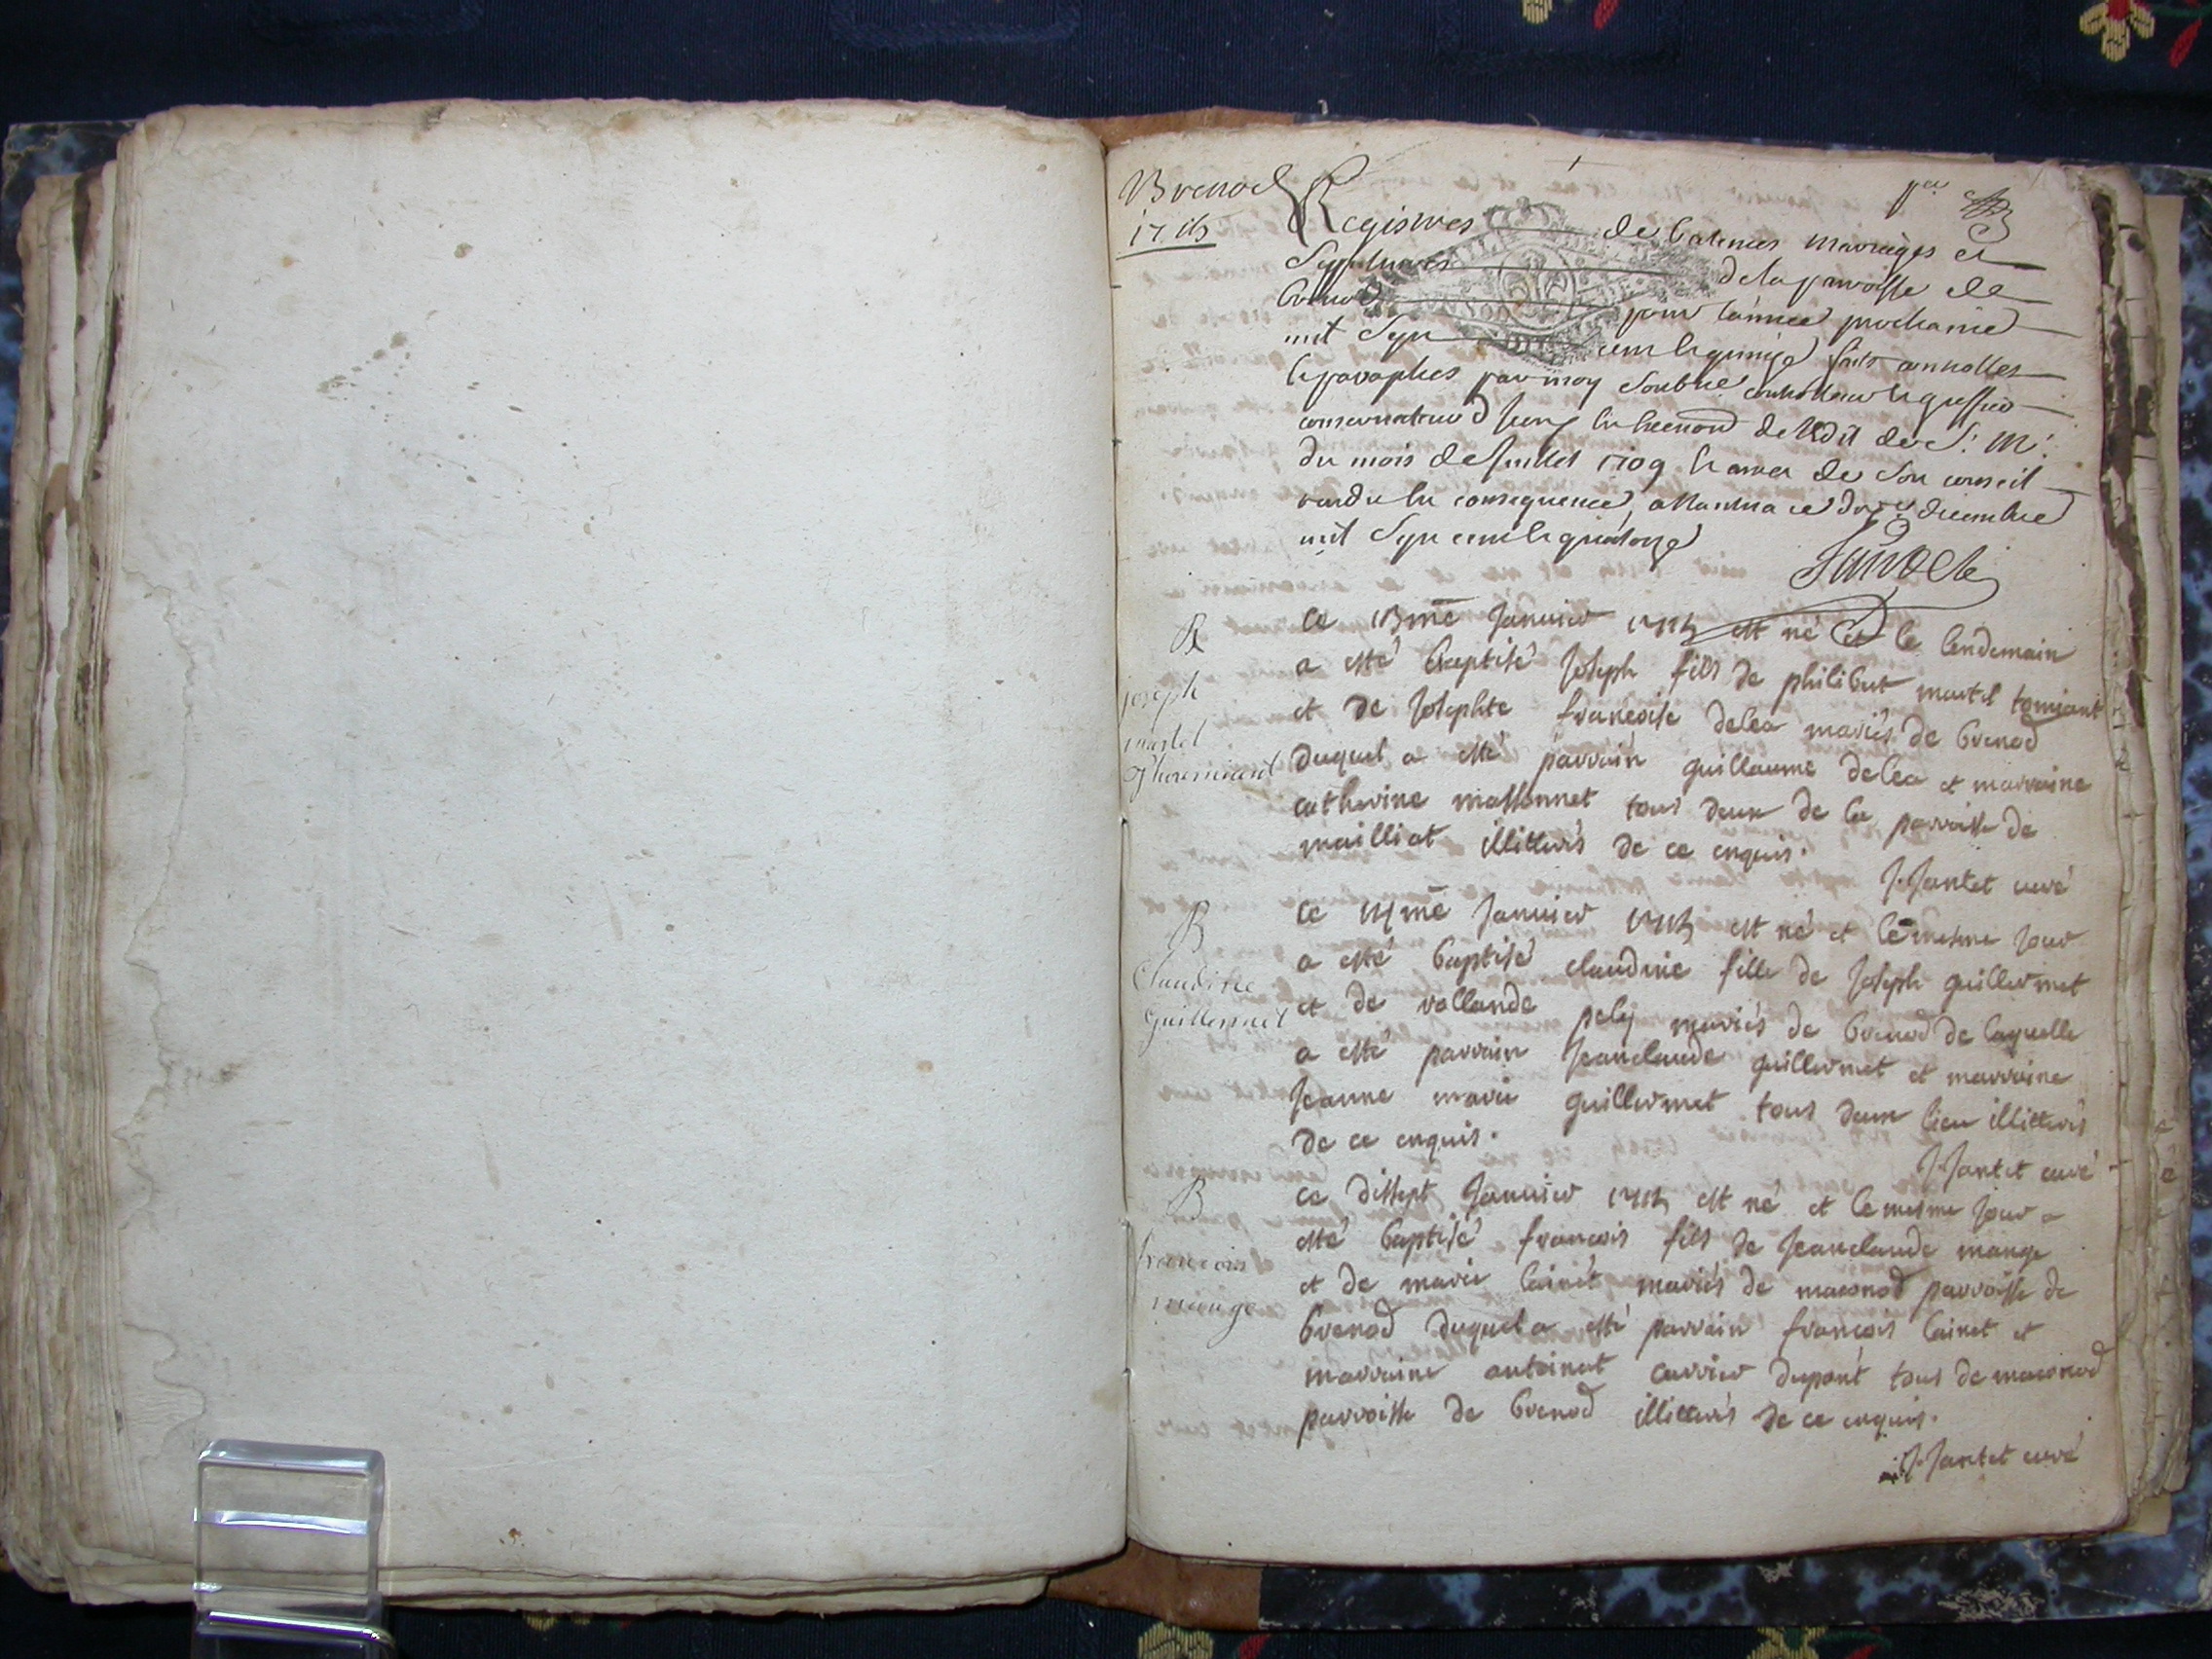 Brenod
1715
1er
Registres de batemes mariages et
Sepultures de la parroisse de
brenod pour l'année prochaine
mil Sept cent et quinze faits controllés
et paraphés par moy Soubné controlleur et greffier
conservateur en de l'Edit de S. M.
du mois de Juillet 1709 et arret de Son conseil
rendu en consequence, a Nantua ce decembre
mil Sept cent et quatorze
B
joseph
martel
Thourniant
ce 13me Janvier 1715 est né et le lendemain
a esté baptisé Joseph fils de philibert martel torniant
et de Josephte francoise delea mariés de brenod
duquel a esté parrain guillaume delea et marraine
catherine massonnet tous deux de la parroisse de
mailliat illitterés de ce enquis.
J. Jantet curé
B
Claudine
Guillermet
ce 14me Janvier 1715 est né et le mesme jour
a esté baptisé claudine fille de Joseph guillermet
et de rollande pely mariés de brenod de laquelle
a esté parrain Jeanclaude guillermet et marraine
Jeanne marie guillermet tous deux lieu illitterés
de ce enquis.
J. Jantet curé
B
francois
mange
ce dissept Janvier 1715 est né et le mesme jour a
esté baptisé francois fils de Jeanclaude mange
et de marie lainet mariés de maconod parroisse de
brenod duquel a esté parrain francois lainet et
marraine antoinat carrier dupont tous de maconod
parroisse de brenod illitterés de ce enquis.
J. Jantet curé